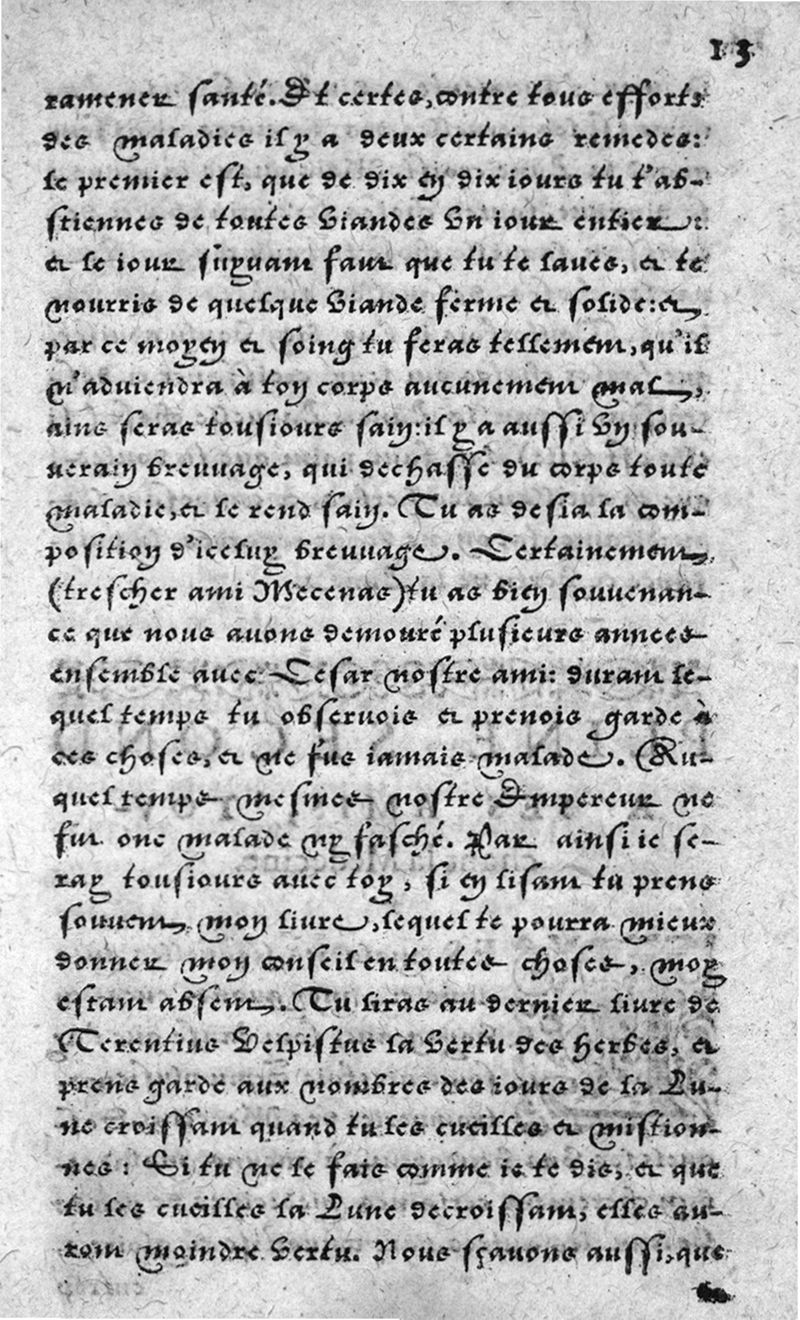 13
ramener santé. Et certes, contre tous efforts
des maladies il y a deux certains remedes:
le premier est, que de dix en dix iours tu t'ab-
stiennes de toutes viandes vn iour entier:
et le iour suyuant faut que tu te laues, et te
nourris de quelque viande ferme et solide: et
par ce moyen et soing tu feras tellement, qu'il
n'aduiendra à ton corps aucunement mal,
ains seras tousiours sain: il y a aussi vn sou-
uerain breuuage, qui dechasse du corps toute
maladie, et le rend sain. Tu as desia la com-
position d'iceluy breuuage. Certainement
(trescher ami Mecenas) tu as bien souuenan-
ce que nous auons demouré plusieurs annees
ensemble auec Cesar nostre ami: durant le-
quel temps tu obseruois et prenois garde à
ces choses, et ne fus iamais malade. Au-
quel temps mesmes nostre Empereur ne
fut onc malade ny fasché. Par ainsi ie se-
ray tousiours auec toy, si en lisant tu prens
souuent mon liure, lequel te pourra mieux
donner mon conseil en toutes choses, moy
estant absent. Tu liras au dernier liure de
Terentius Velpistus la vertu des herbes, et
prens garde aux nombres des iours de la Lu-
ne croissant quand tu les cueilles et mistion-
nes: Si tu ne le fais comme ie te dis, et que
tu les cueilles la Lune decroissant, elles au-
ront moindre vertu. Nous sçauons aussi, que